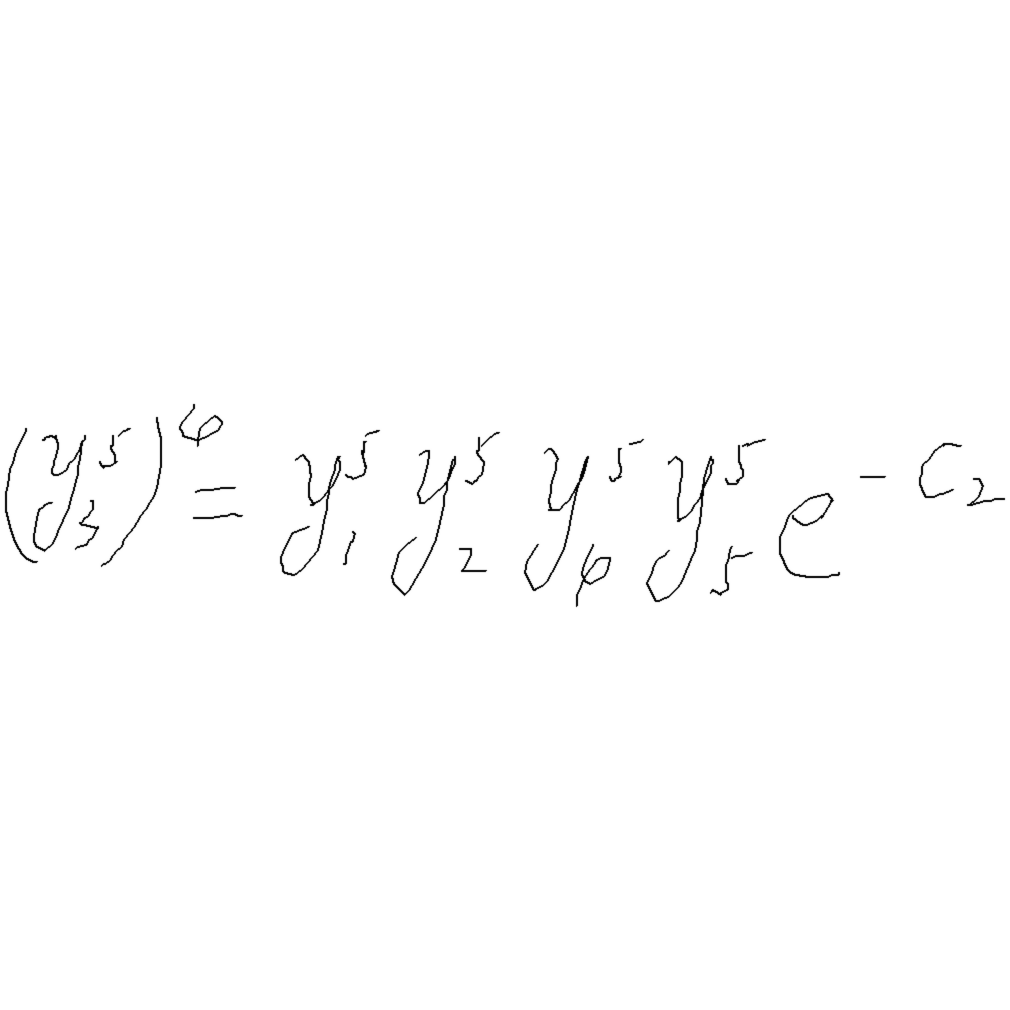 $(y_3^5)^4 = y_1^5 y_2^5 y_4^5 y_5^5 e^{-c_2}$